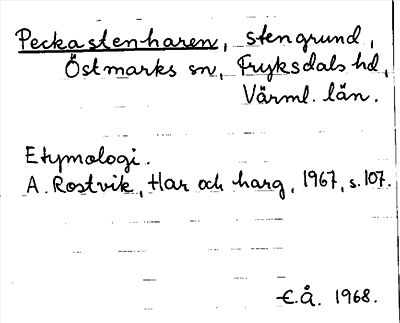 Peckastenharen, stengrund,
Östmarks sn, Fryksdals hd,
Värml. län.
Etymologi.
A. Rostvik, Har och harg, 1967, s. 107.
E.Å. 1968.